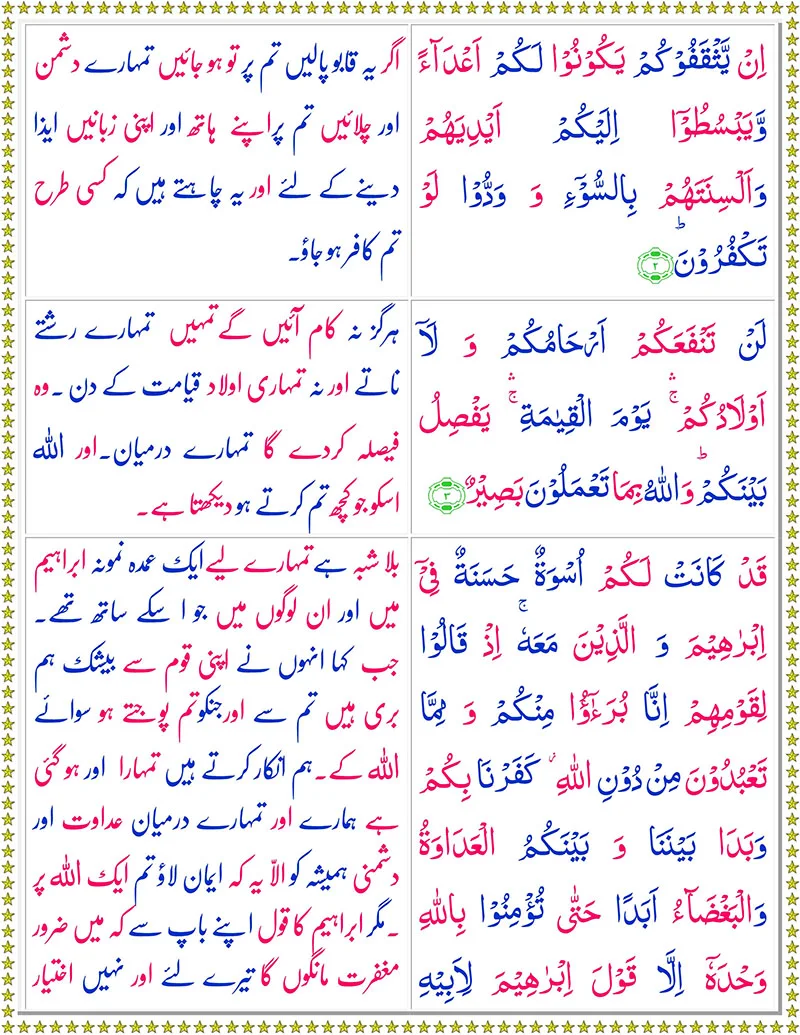 اِنْ يَّثْقَفُوْكُمْ يَكُوْنُوْا لَكُمْ اَعْدَآءً
وَّيَبْسُطُوْۤا اِلَيْكُمْ اَيْدِيَهُمْ
وَاَلْسِنَتَهُمْ بِالسُّوْٓءِ وَ وَدُّوْا لَوْ
تَكْفُرُوْنَؕ ۲
اگر یہ قابو پالیں تم پر تو ہو جائیں تمہارے دشمن
اور چلائیں تم پر اپنے ہاتھ اور اپنی زبانیں ایذا
دینے کے لئے اور یہ چاہتے ہیں کہ کسی طرح
تم کافر ہو جاؤ۔
لَنْ تَنْفَعَكُمْ اَرْحَامُكُمْ وَ لَاۤ
اَوْلَادُكُمْ ۛۚ يَوْمَ الْقِيٰمَةِ ۛۚ يَفْصِلُ
بَيْنَكُمْؕ وَاللّٰهُ بِمَا تَعْمَلُوْنَ بَصِيْرٌ ۳
ہرگز نہ کام آئیں گے تمہیں تمہارے رشتے
ناتے اور نہ تمہاری اولاد قیامت کے دن ۔ وہ
فیصلہ کردے گا تمہارے درمیان۔ اور اللہ
اسکو جو کچھ تم کرتے ہو دیکھتا ہے۔
قَدْ كَانَتْ لَكُمْ اُسْوَةٌ حَسَنَةٌ فِيْۤ
اِبْرٰهِيْمَ وَ الَّذِيْنَ مَعَهٗ ۚ اِذْ قَالُوْا
لِقَوْمِهِمْ اِنَّا بُرَءٰٓؤُا مِنْكُمْ وَ مِمَّا
تَعْبُدُوْنَ مِنْ دُوْنِ اللّٰهِ كَفَرْنَا بِكُمْ
وَبَدَا بَيْنَنَا وَ بَيْنَكُمُ الْعَدَاوَةُ
وَالْبَغْضَآءُ اَبَدًا حَتّٰى تُؤْمِنُوْا بِاللّٰهِ
وَحْدَهٗۤ اِلَّا قَوْلَ اِبْرٰهِيْمَ لِاَبِيْهِ
بلا شبہ ہے تمہارے لیے ایک عمدہ نمونہ ابراہیم
میں اور ان لوگوں میں جو اسکے ساتھ تھے۔
جب کہا انہوں نے اپنی قوم سے بیشک ہم
بری ہیں تم سے اور جنکو تم پوجتے ہو سوائے
اللہ کے۔ ہم انکار کرتے ہیں تمہارا اور ہو گئی
ہے ہمارے اور تمہارے درمیان عداوت اور
دشمنی ہمیشہ کو الاّ یہ کہ ایمان لاؤ تم ایک اللہ پر
۔ مگر ابراہیم کا قول اپنے باپ سے کہ میں ضرور
مغفرت مانگوں گا تیرے لئے اور نہیں اختیار